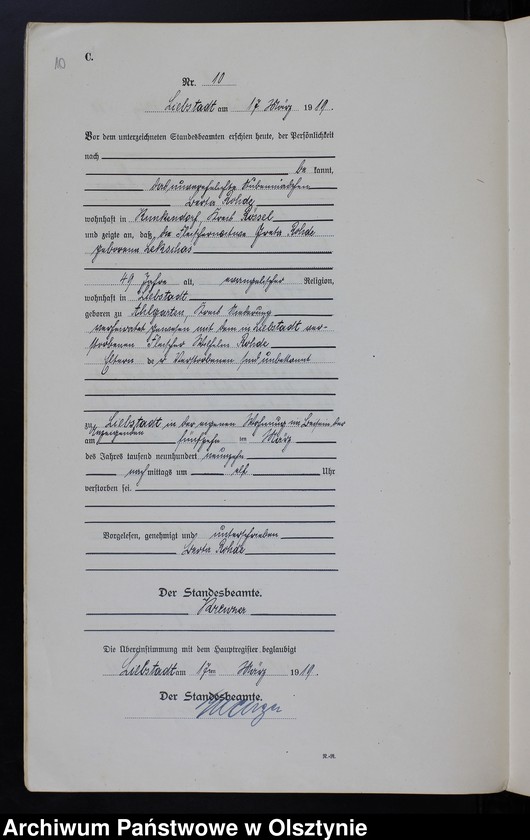 10
C.
Nr. 10
Liebstadt am 17 März 1919.
Vor dem unterzeichneten Standesbeamten erschien heute, der Persönlichkeit
nach
be kannt,
das unverehelichte Stubenmädchen
Berta Rohde
wohnhaft in Runkendorf, Kreis Rössel
und zeigte an, daß die Fleischerwitwe Greta Rohde
geborene Lekschas
49 Jahre alt, evangelischer Religion,
wohnhaft in Liebstadt
geboren zu Ahlgarten, Kreis Niederung
verheiratet gewesen mit dem in Liebstadt ver-
storbenen Fleischer Wilhelm Rohde
Eltern de r Verstorbenen sind unbekannt
zu Liebstadt in der eigenen Wohnung im Beisein der
Anzeigenden
am fünfzehn ten März
des Jahres tausend neunhundert neunzehn
nach mittags um elf Uhr
verstorben sei.
Vorgelesen, genehmigt und unterschrieben
Berta Rohde
Der Standesbeamte.
Die Übereinstimmung mit dem Hauptregister beglaubigt
Liebstadt am 17ten März 1919.
Der Standesbeamte.
R.-R.
Archiwum Państwowe w Olsztynie